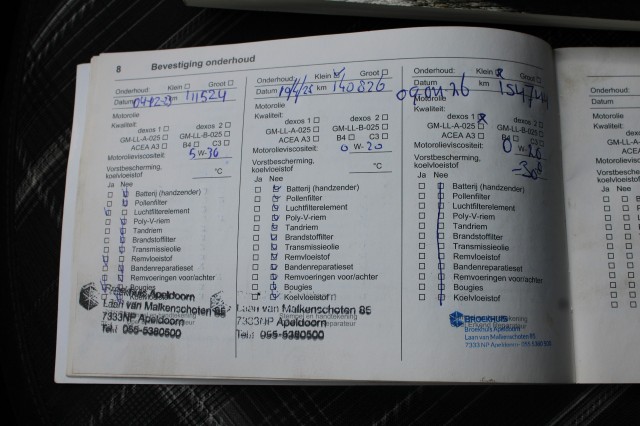 8 Bevestiging onderhoud
Onderhoud: Klein Groot
Datum km 111524
Motorolie
Kwaliteit:
dexos 1 dexos 2
GM-LL-A-025 GM-LL-B-025
ACEA A3 B4 C3
Motorolieviscositeit: 5 W-30
Vorstbescherming, koelvloeistof °C
Ja Nee
Batterij (handzender)
Pollenfilter
Luchtfilterelement
Poly-V-riem
Tandriem
Brandstoffilter
Transmissieolie
Remvloeistof
Bandenreparatieset
Remvoeringen voor/achter
Bougies
Koelvloeistof
Broekhuis Apeldoorn
Laan van Malkenschoten 85
7333NP Apeldoorn
Tel.: 055-5380500
Onderhoud: Klein Groot
Datum km 140826
Motorolie
Kwaliteit:
dexos 1 dexos 2
GM-LL-A-025 GM-LL-B-025
ACEA A3 B4 C3
Motorolieviscositeit: 0 W-20
Vorstbescherming, koelvloeistof °C
Ja Nee
Batterij (handzender)
Pollenfilter
Luchtfilterelement
Poly-V-riem
Tandriem
Brandstoffilter
Transmissieolie
Remvloeistof
Bandenreparatieset
Remvoeringen voor/achter
Bougies
Koelvloeistof
Laan van Malkenschoten 85
7333NP Apeldoorn
Tel.: 055-5380500
Onderhoud: Klein Groot
Datum 09.04.26 km
Motorolie
Kwaliteit:
dexos 1 dexos 2
GM-LL-A-025 GM-LL-B-025
ACEA A3 B4 C3
Motorolieviscositeit: 0 W-20
Vorstbescherming, koelvloeistof
Ja Nee
Batterij (handzender)
Pollenfilter
Luchtfilterelement
Poly-V-riem
Tandriem
Brandstoffilter
Transmissieolie
Remvloeistof
Bandenreparatieset
Remvoeringen voor/achter
Bougies
Koelvloeistof
BROEKHUIS
Broekhuis Apeldoorn
Laan van Malkenschoten 85
7333 NP Apeldoorn
Onderhoud:
Datum
Motorolie
Kwaliteit: